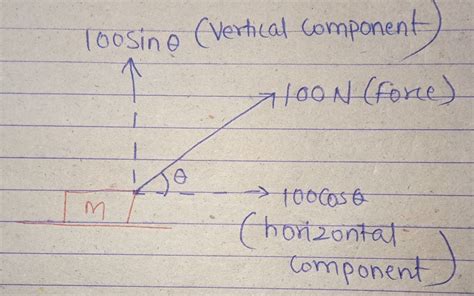 100sinθ (Vertical Component)
100N (force)
θ
m
100cosθ
(horizontal
component)